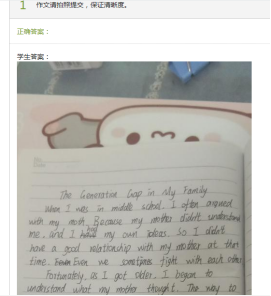 1 作文请拍照提交，保证清晰度。
正确答案：
学生答案：
The Generation Gap in My Family
When I was in middle school. I often argued
with my moth. Because my mother didn't understand
me. and I had my own ideas. So I didn't
have a good relationship with my mother at that
time. Even we somotions fight with each other
Fortunately, as I got older. I began to
understand what my mother thought. The way to